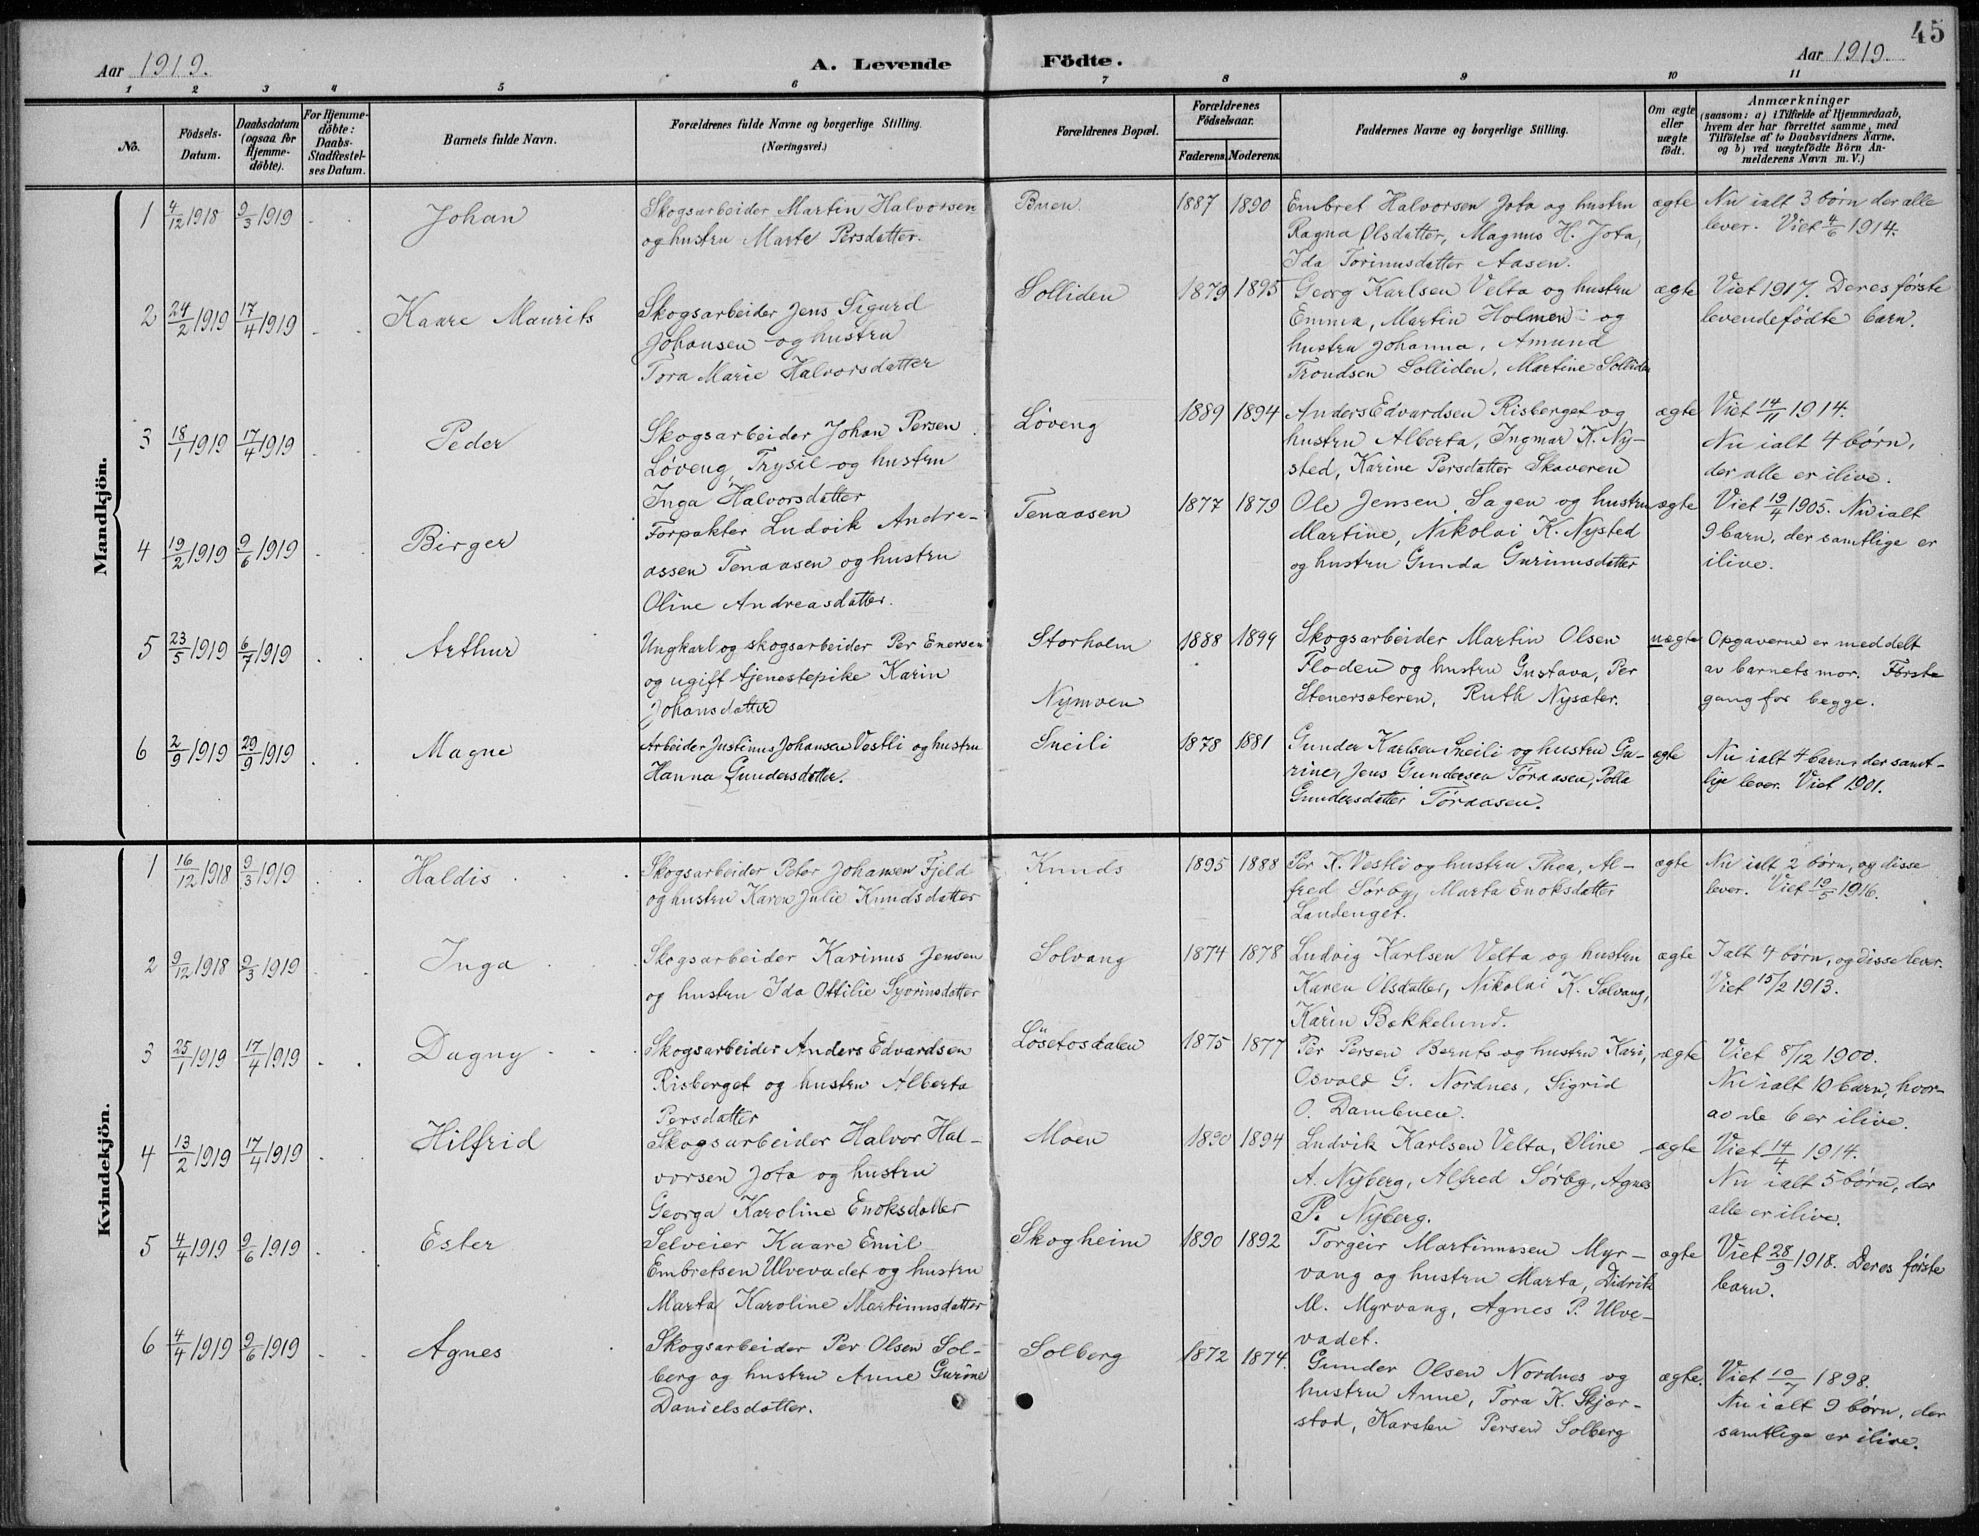 45
Aar 1919.
A. Levende Födte.
Aar 1919.
1 2 3 4 5 6 7 8 9 10 11
No.
Födsels-
Datum.
Daabsdatum
(ogsaa for
Hjemme-
döbte).
For Hjemme-
döbte:
Daabs-
Stadfæstel-
ses Datum.
Barnets fulde Navn.
Forældrenes fulde Navne og borgerlige Stilling.
(Næringsvei.)
Forældrenes Bopæl.
Forældrenes
Födselsaar.
Faderens. Moderens.
Faddernes Navne og borgerlige Stilling.
Om ægte
eller
uægte
födt.
Anmærkninger
(saasom: a) i Tilfælde af Hjemmedaab,
hvem der har forrettet samme, med
Tilföielse af to Daabsvidners Navne.
og b) ved uægtefödte Börn An-
melderens Navn m. V.)
Mandkjön.
1 4/12 1918 9/3 1919 Johan
Skogsarbeider Martin Halvorsen
og hustru Marte Persdatter.
Buen 1887 1890
Embret Halvorsen Jota og hustru
Ragna Olsdatter, Magnus H. Jota,
Ida Torinusdatter Aasen.
ægte
Nu ialt 3 børn der alle
lever. Viet 4/6 1914.
2 24/2 1919 17/4 1919 Kaare Maurits
Skogsarbeider Jens Sigurd
Johansen og hustru
Tora Marie Halvorsdatter
Solliden 1879 1895
Georg Karlsen Velta og hustru
Emma, Martin Holmen og
hustru Johanna, Amund
Trondsen Solliden, Martine Solliden
ægte
Viet 1917. Deres første
levendefødte barn.
3 18/1 1919 17/4 1919 Peder
Skogsarbeider Johan Persen
Løveng, Trysil og hustru
Inga Halvorsdatter
Løveng 1889 1894
Anders Edvardsen Risberget og
hustru Alberta, Ingmar K. Ny-
sted, Karine Persdatter Skaveren
ægte
Viet 14/11 1914.
Nu ialt 4 børn,
der alle er ilive.
4 19/2 1919 9/6 1919 Birger
Forpakter Ludvik Andre-
assen Tenaasen og hustru
Oline Andreasdatter.
Tenaasen 1877 1879
Ole Jensen Sagen og hustru
Martine, Nikolai K. Nysted
og hustru Gunda Gurinusdatter
ægte
Viet 19/4 1905. Nu ialt
9 barn, der samtlige er
ilive.
5 23/5 1919 6/7 1919 Arthur
Ungkarl og skogsarbeider Per Enersen
og ugift tjenestepike Karin
Johansdatter
Storholm
Nymoen
1888 1899
Skogsarbeider Martin Olsen
Floden og hustru Gustava, Per
Stenersæteren, Ruth Nysæter.
uægte
Opgaverne er meddelt
av barnets mor. Første
gang for begge.
6 2/9 1919 29/9 1919 Magne
Arbeider Justinus Johansen Vestli og hustru
Hanna Gundersdatter.
Sneili 1878 1881
Gunder Karlsen Sneili og hustru Gu-
rine, Jens Gundersen Töraasen, Polla
Gundersdatter Töraasen.
ægte
Nu ialt 4 barn der samt-
lige lever. Viet 1901.
Kvindekjön.
1 16/12 1918 9/3 1919 Haldis
Skogsarbeider Peter Johansen Fjeld
og hustru Karen Julie Knudsdatter
Knuds 1895 1888
Per K. Vestli og hustru Thea, Al-
fred Sørby, Marta Enoksdatter
Landenget.
ægte
Nu ialt 2 børn, og disse
lever. Viet 19/5 1916.
2 9/12 1918 9/3 1919 Inga
Skogsarbeider Karinus Jensen
og hustru Ida Ottilie Syvrinsdatter
Solvang 1874 1878
Ludvig Karlsen Velta og hustru
Karen Olsdatter, Nikolai K. Solvang,
Karin Bækkelund.
ægte
Ialt 4 børn, og disse lever.
Viet 15/2 1913.
3 25/1 1919 17/4 1919 Dagny
Skogsarbeider Anders Edvardsen
Risberget og hustru Alberta
Persdatter
Lösetosdalen 1875 1877
Per Persen Bernts og hustru Kari,
Osvald G. Nordnes, Sigrid
O. Dambuen.
ægte
Viet 8/12 1900.
Nu ialt 10 barn, hvor-
av de 6 er ilive.
4 13/2 1919 17/4 1919 Hilfrid
Skogsarbeider Halvor Hal-
vorsen Jota og hustru
Georga Karoline Enoksdatter
Moen 1890 1894
Ludvik Karlsen Velta, Oline
A. Nyberg, Alfred Sørby, Agnes
P. Nyberg.
ægte
Viet 14/4 1914.
Nu ialt 5 børn, der
alle er ilive.
5 4/4 1919 9/6 1919 Ester
Selveier Kaare Emil
Embretsen Ulvevadet og hustru
Marta Karoline Martinusdatter
Skogheim 1890 1892
Torgeir Martinussen Myr-
vang og hustru Marta, Didrik
M. Myrvang, Agnes P. Ulve-
vadet.
ægte
Viet 28/9 1918. Deres første
barn.
6 4/4 1919 9/6 1919 Agnes
Skogsarbeider Per Olsen Sol-
berg og hustru Anne Gurine
Danielsdatter.
Solberg 1872 1874.
Gunder Olsen Nordnes og
hustru Anne, Tora K. Skjær-
stad, Karsten Persen Solberg
ægte.
Viet 10/7 1898.
Nu ialt 9 børn, der
samtlige er ilive.